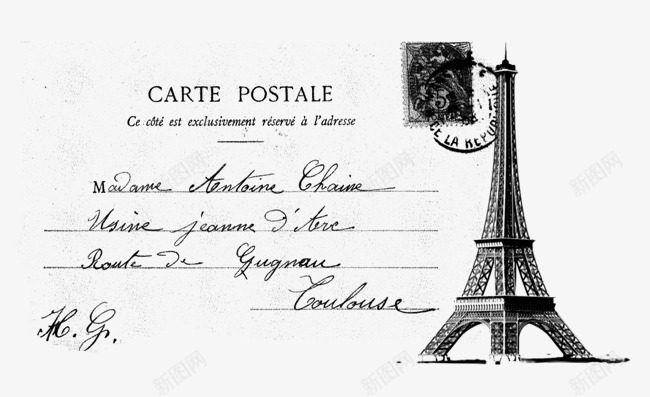 CARTE POSTALE
Ce côté est exclusivement réservé à l'adresse
5
DE LA REPUBLIQUE
Madame Antoine Chaine
Usine jeanne d'Arc
Route de Gugnau
Toulouse
H. G.